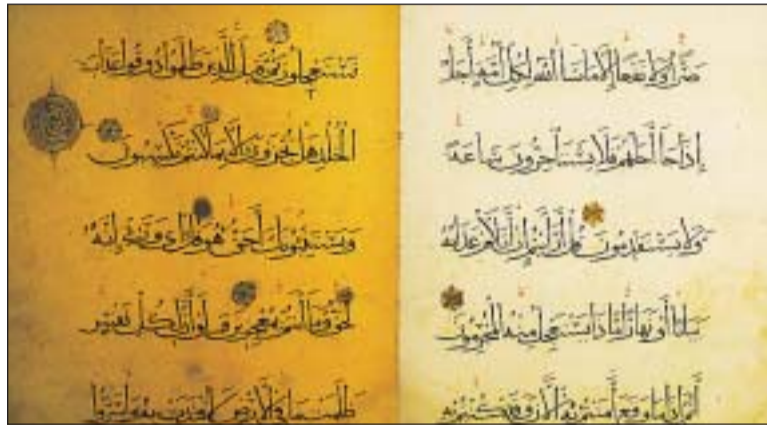 ضَرًّا وَلَا نَفْعًا إِلَّا مَا شَاءَ اللَّهُ لِكُلِّ أُمَّةٍ أَجَلٌ
إِذَا جَاءَ أَجَلُهُمْ فَلَا يَسْتَأْخِرُونَ سَاعَةً
وَلَا يَسْتَقْدِمُونَ قُلْ أَرَأَيْتُمْ إِنْ أَتَاكُمْ عَذَابُهُ
بَيَاتًا أَوْ نَهَارًا مَاذَا يَسْتَعْجِلُ مِنْهُ الْمُجْرِمُونَ
أَثُمَّ إِذَا مَا وَقَعَ آمَنْتُمْ بِهِ آلْآنَ وَقَدْ كُنْتُمْ بِهِ
تَسْتَعْجِلُونَ ثُمَّ قِيلَ لِلَّذِينَ ظَلَمُوا ذُوقُوا عَذَابَ
الْخُلْدِ هَلْ تُجْزَوْنَ إِلَّا بِمَا كُنْتُمْ تَكْسِبُونَ
وَيَسْتَنْبِئُونَكَ أَحَقٌّ هُوَ قُلْ إِي وَرَبِّي إِنَّهُ
لَحَقٌّ وَمَا أَنْتُمْ بِمُعْجِزِينَ وَلَوْ أَنَّ لِكُلِّ نَفْسٍ
ظَلَمَتْ مَا فِي الْأَرْضِ لَافْتَدَتْ بِهِ وَأَسَرُّوا